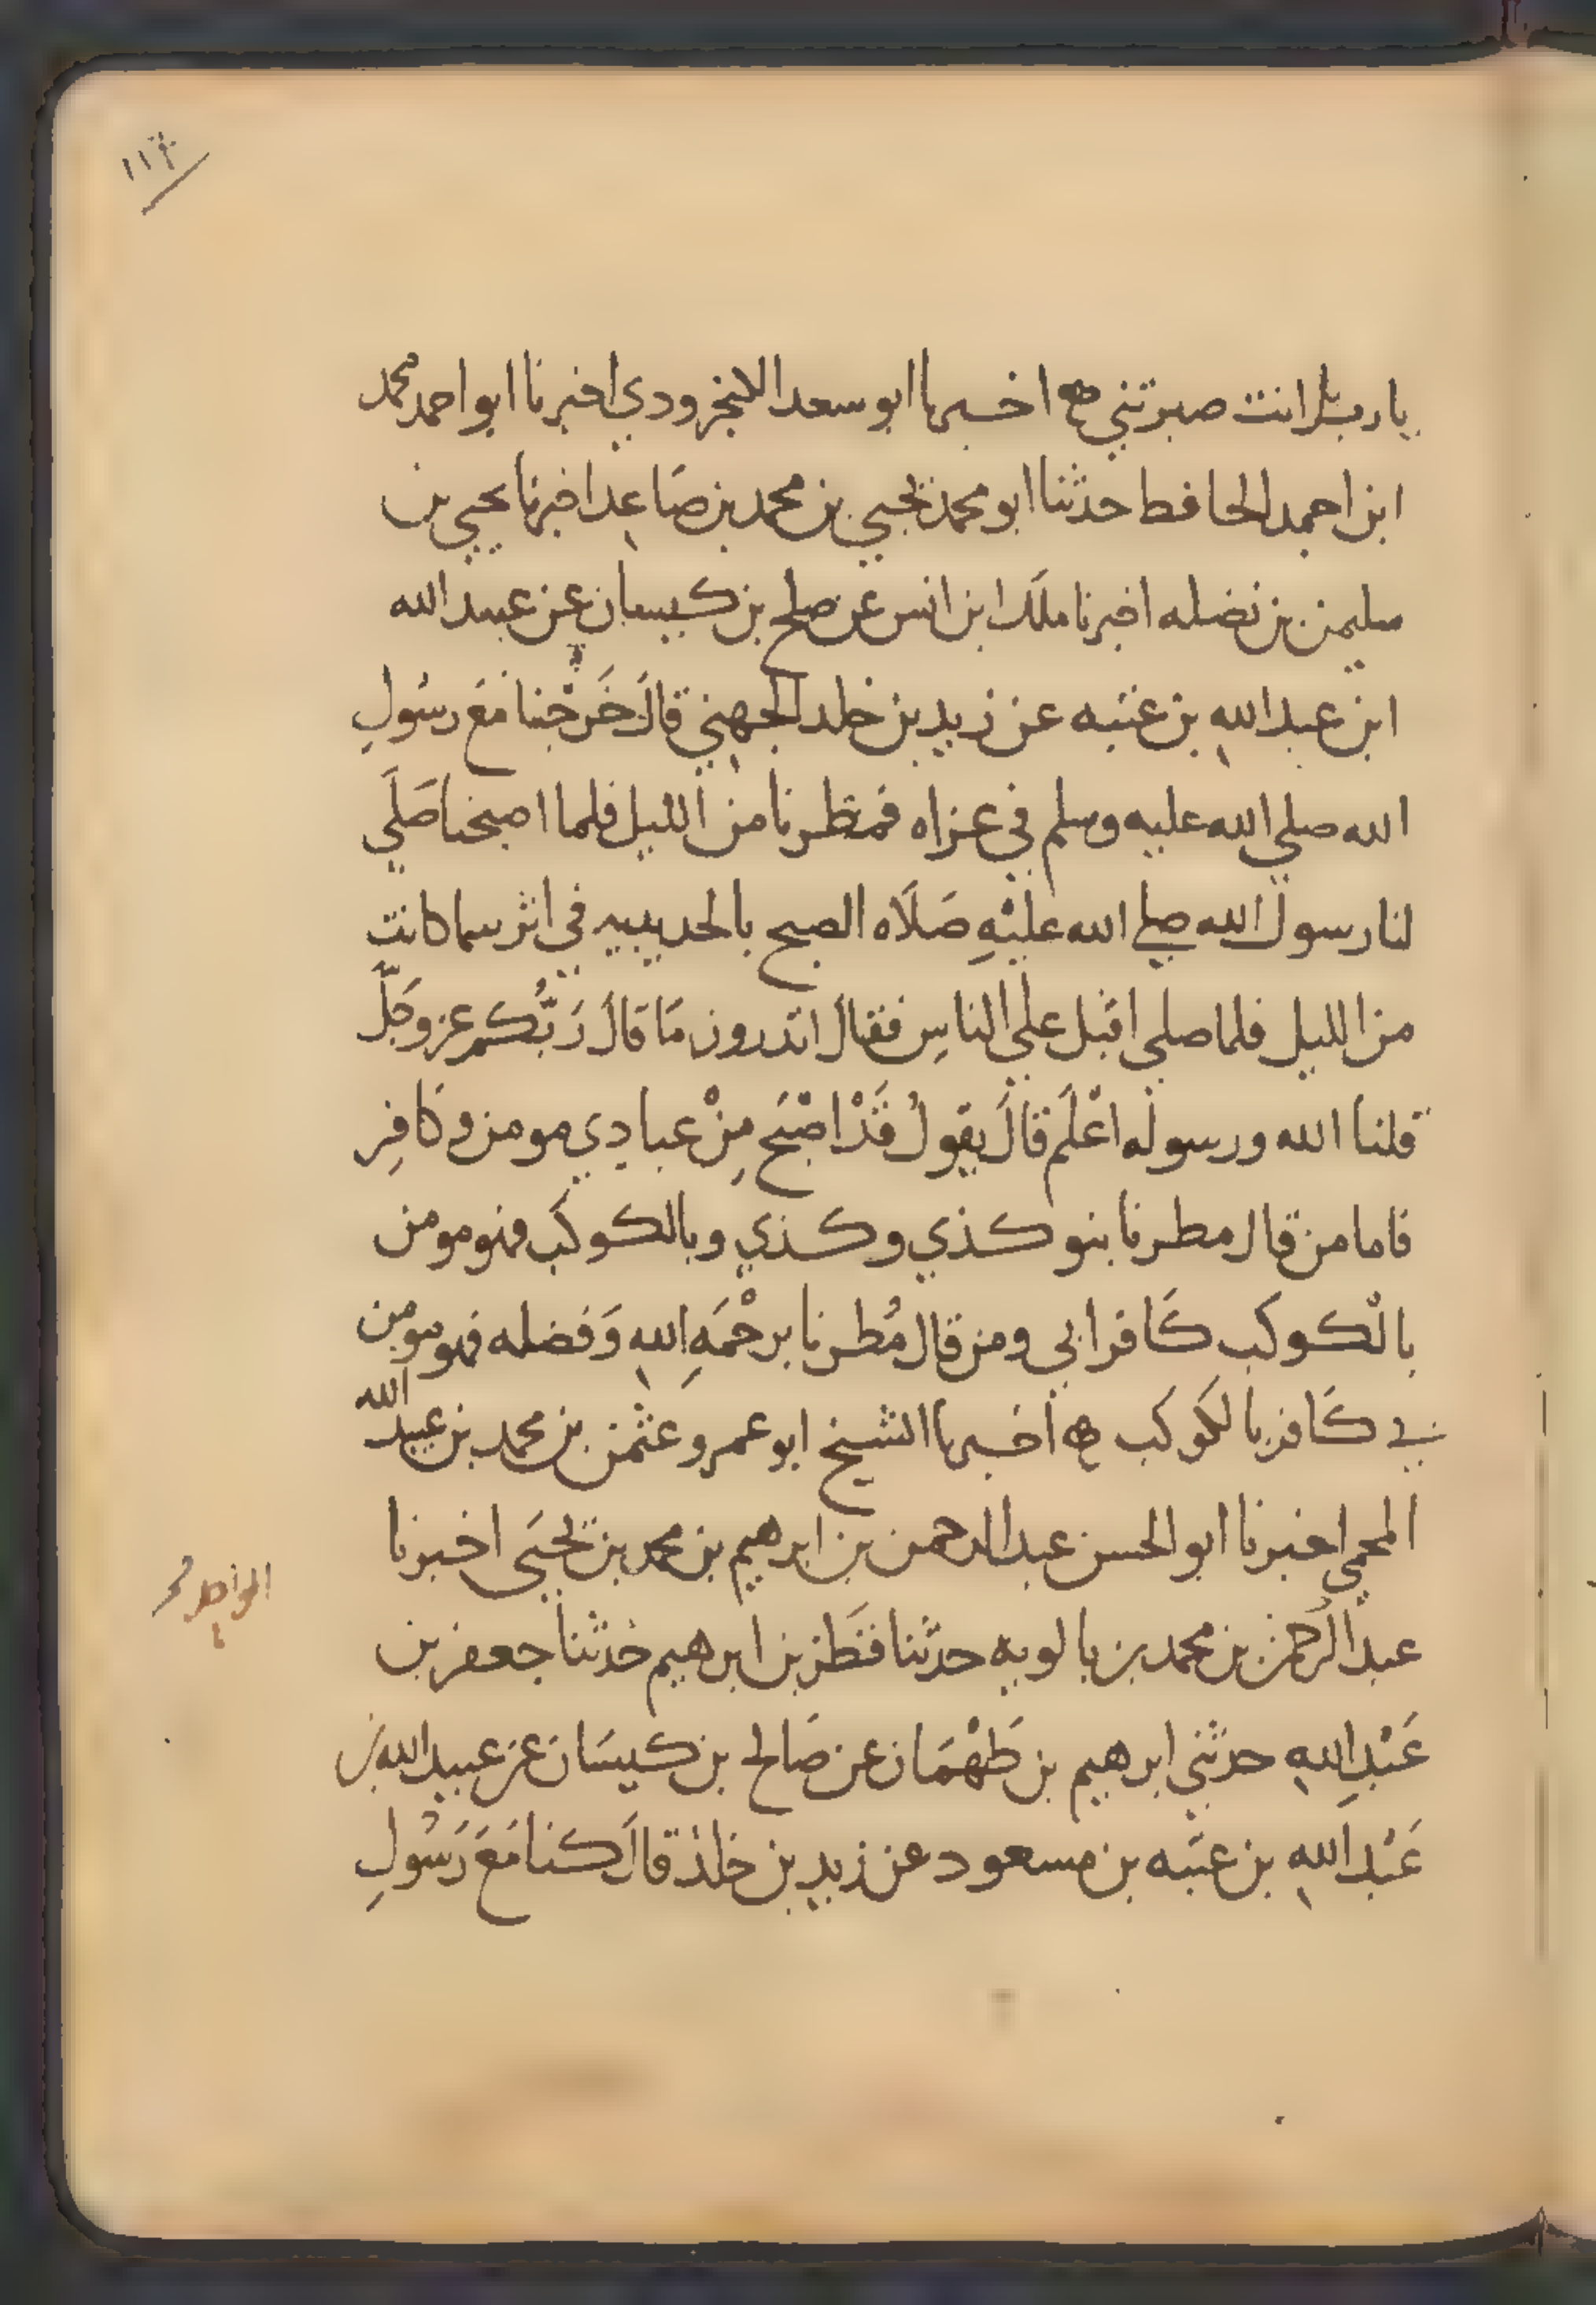 يارب بل انت صبرتني ه اخبرنا ابو سعد الكنجرودي اخبرنا ابو احمد محمد
ابن احمد الحافظ حدثنا ابو محمد يحيي بن محمد بن صَاعِد اخبرنا يحيي بن
سليمن بن نضله اخبرنا ملك ابن انس عن صلح بن كيسان عن عبيد الله
ابن عبد اللهِ بن عتبه عن زيد بن خلد الجهني قالَ خَرَجْنا مَعَ رسُولِ
الله صلي الله عليه وسلم في غزاه فمطرنا من الليل فلما اصبحنا صَلَي
لنا رسول الله صلى الله عليْهِ صَلَاه الصبح بالحديبيه في اثر سما كانت
من الليل فلما صلي اقبل علي الناسِ فقال اتدرون مَا قالَ رَبُّكم عز وجَلَّ
قلنا الله ورسوله اعْلَم قالَ يقولُ قَدْ اصْبَح مِنْ عبادي مومن وكافِر
فاما من قال مطرنا بنو كذي وكذي وبالكوكب فهو مومن
بالكوكب كَافر ابي ومن قال مُطرنا برحْمَهِ اللهِ وَفضله فهو مومن
بي كَافر بالكوكب ه اخبرنا الشيخ ابو عمرو عثمن بن محمد بن عبيد الله
المحمي اخبرنا ابو الحسن عبد الرحمن بن ابرهيم بن محمد بن يحيَى اخبرنا
عبد الرحمن بن محمد بن بالويه حدثنا قَطن بن ابرهيم حدثنا جعفر بن
عَبْدِ اللهِ حدثني ابرهيم بن طَهْمَان عن صَالح بن كيسَان عن عبيد الله بن
عَبْدِ اللهِ بن عتبَه بن مسعود عن زيد بن خلد قالَ كنا مَعَ رَسُولِ